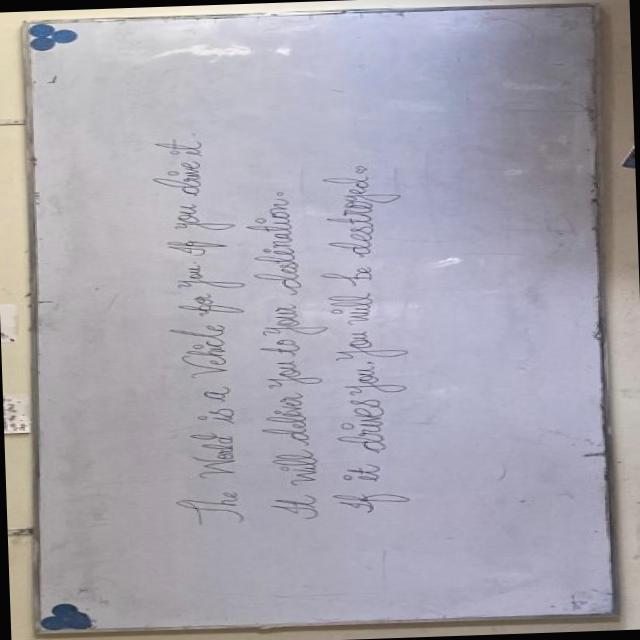 The World is a Vehile for you if you drive it.
It will deliver you to your destination.
If it drives you, you will be destroyed.